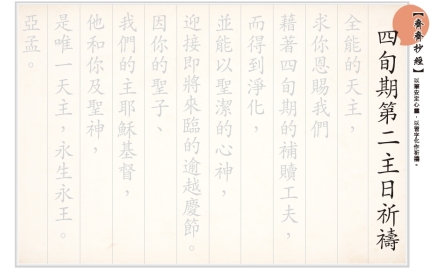 【齊齊抄經】
以筆安定心靈,以習字化作祈禱。
四旬期第二主日祈禱
全能的天主,
求你恩賜我們
藉著四旬期的補贖工夫,
而得到淨化,
並能以聖潔的心神,
迎接即將來臨的逾越慶節。
因你的聖子、
我們的主耶穌基督,
他和你及聖神,
是唯一天主,永生永王。
亞孟。